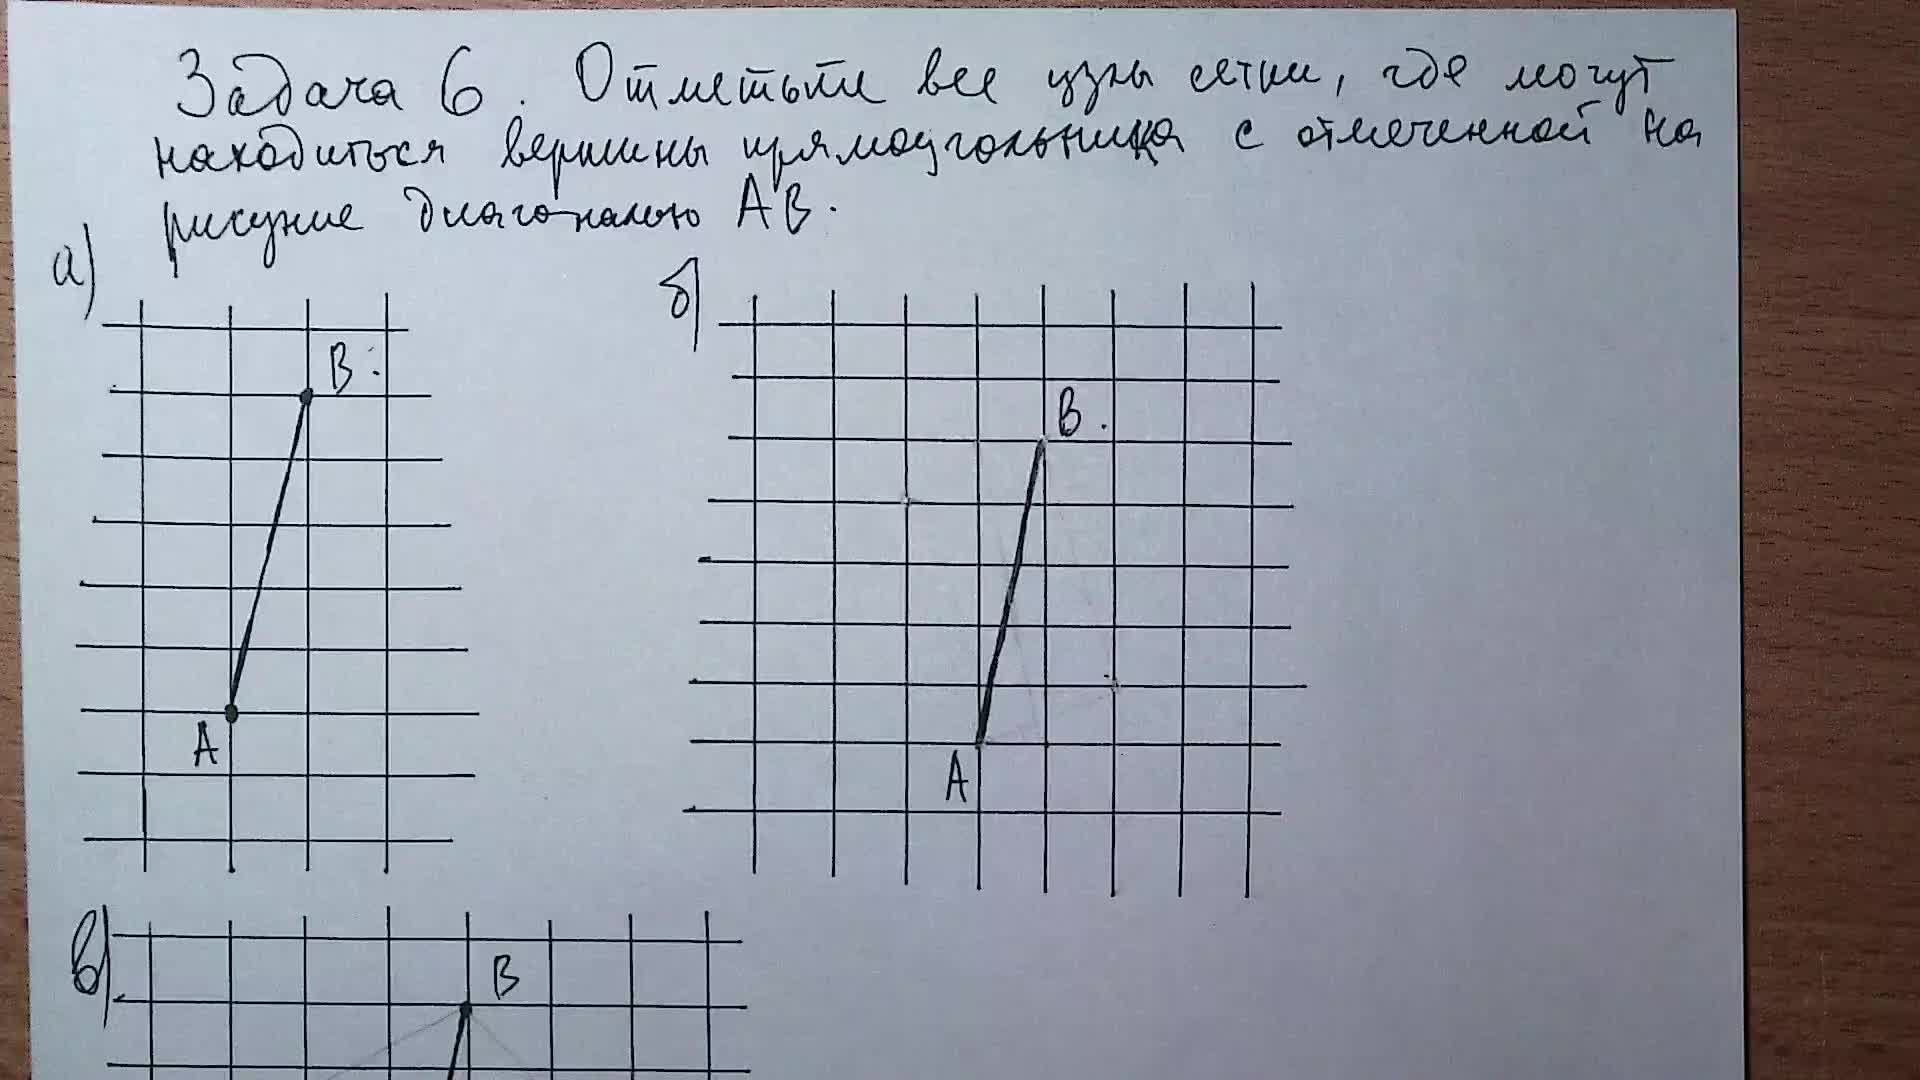 Задача 6. Отметьте все узлы сетки, где могут
находиться вершины прямоугольника с отмеченной на
рисунке диагональю АВ.
а)
б)
В
В
А
А
в)
В